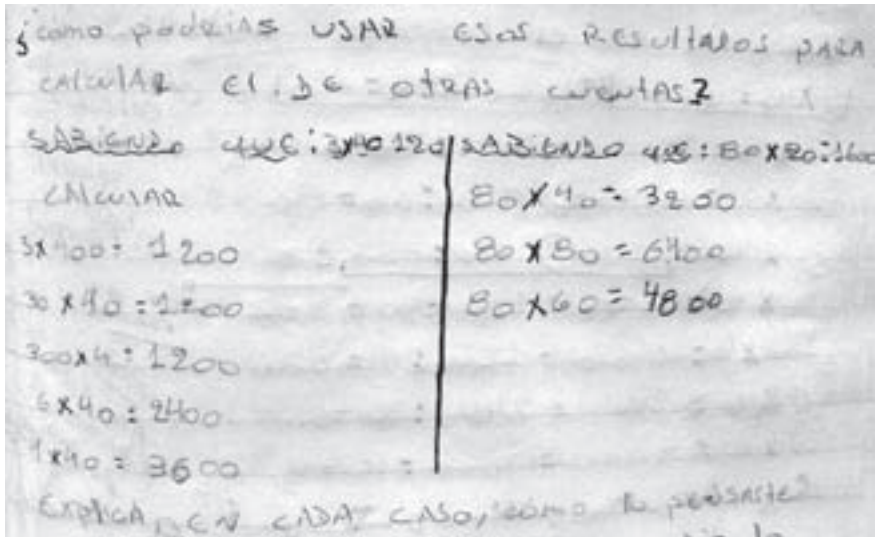 ¿como podrías USAR ESOS RESultADOS PARA
CALCULAR El. DE = OtRAS CUENTAS?
SABIENDO QUE: 3x40 120
CALCULAR
3x400: 1200
30 x 40 : 1200
300x4: 1200
6x40: 2400
x40 = 3600
SABIENDO QUE: 80x20:1600
80x40= 3200
80x80 = 6400
80x60= 4800
EXPLICA, EN CADA CASO, como lo pensaste